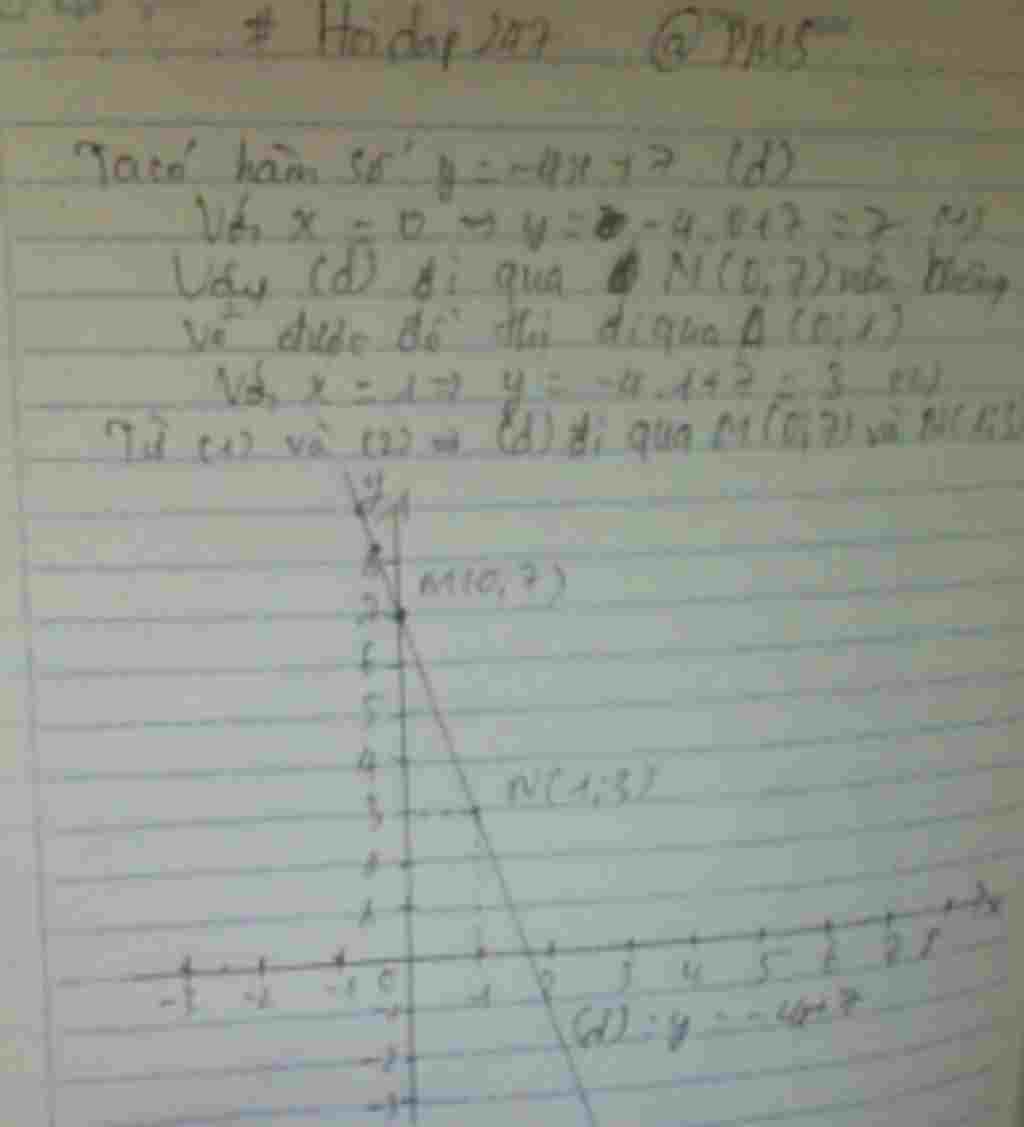 # Hoidap247 @PM5
Ta có hàm số y = -4x + 7 (d)
Với x = 0 => y = -4.0+7 = 7 (1)
Vậy (d) đi qua M(0;7) nên không
vẽ được đồ thị đi qua A (0;1)
Với x = 1 => y = -4.1+7 = 3 (2)
Từ (1) và (2) => (d) đi qua M(0;7) và N(1;3)
y
8
M(0,7)
7
6
5
4
N(1;3)
3
1
x
-3 -2 -1 0 1 2 3 4 5 6 7 8
-1
(d): y = -4x+7
-2
-3